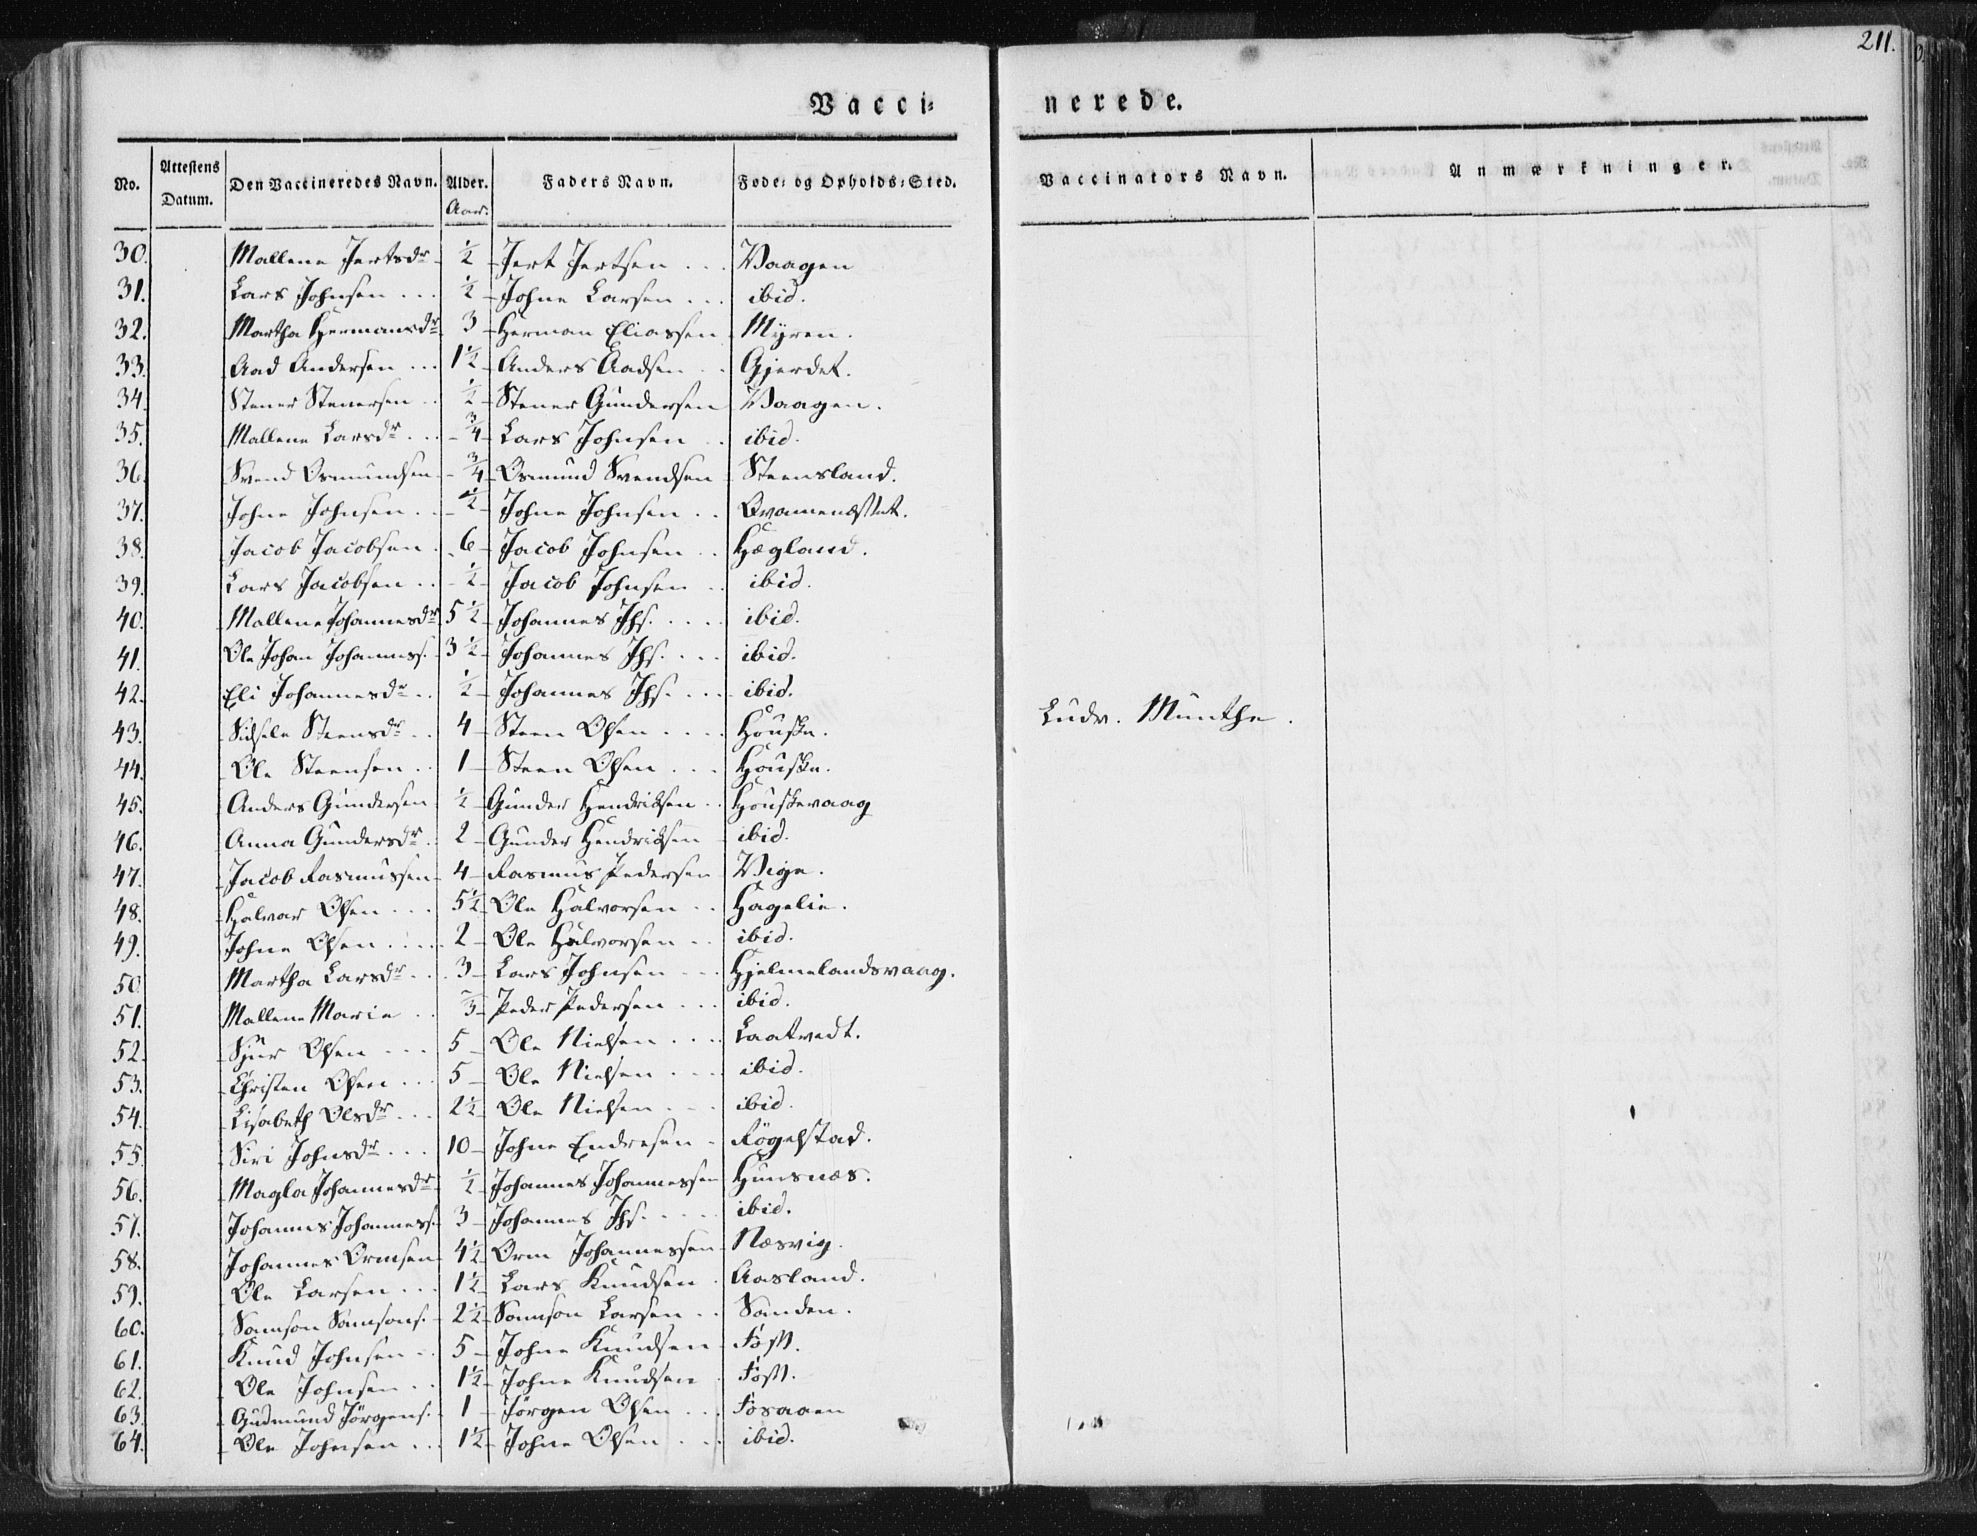 211.
Vacci- nerede.
No. Attestens Datum. Den Vaccineredes Navn. Alder. Faders Navn. Føde- og Opholds-Sted. Vaccinators Navn. Anmærkninger.
Aar.
30. Mallene Jertsdr ½ Jert Jertsen Vaagen
31. Lars Johnsen ½ Johne Larsen ibid.
32. Martha Hermansdr 3 Herman Eliassen Myren.
33. Aad Andersen 1½ Anders Aadsen Gjerdet.
34. Stener Stenersen ½ Stener Gundersen Vaagen.
35. Mallene Larsdr ¾ Lars Johnsen ibid.
36. Svend Osmundsen ¾ Osmund Svendsen Steensland.
37. Johne Johnsen ½ Johne Johnsen
38. Jacob Jacobsen 6 Jacob Johnsen Hægland.
39. Lars Jacobsen ½ Jacob Johnsen ibid.
40. Mallene Johannesdr 5½ Johannes Jhs. ibid.
41. Ole Johan Johanness. 3½ Johannes Jhs. ibid.
42. Eli Johannesdr ½ Johannes Jhs. ibid.
43. Sidsele Steensdr 4 Steen Olsen Houske. Ludv. Munthe.
44. Ole Steensen 1 Steen Olsen Houske.
45. Anders Gundersen ½ Gunder Hendriksen Houskevaag
46. Anna Gundersdr 2 Gunder Hendriksen ibid.
47. Jacob Rasmussen 4 Rasmus Pedersen Vige.
48. Halvor Olsen 5½ Ole Halvorsen Hagelie.
49. Johne Olsen 2 Ole Halvorsen ibid.
50. Martha Larsdr 3 Lars Johnsen Hjelmelandsvaag.
51. Mallene Marie Peder Pedersen ibid.
52. Sjur Olsen 5 Ole Nielsen Laatvedt.
53. Christen Olsen 5 Ole Nielsen ibid.
54. Lisabeth Olsdr 2½ Ole Nielsen ibid.
55. Siri Johnsdr 10 Johne Endresen Røgelstad.
56. Magla Johannesdr ½ Johannes Johannessen Hunsnæs.
57. Johannes Johanness. 3 Johannes Jhs. ibid.
58. Johannes Ormsen 4½ Orm Johannessen Næsvig.
59. Ole Larsen 1½ Lars Knudsen Aasland.
60. Samson Samsons. 2½ Samson Larsen Sanden.
61. Knud Johnsen 5 Johne Knudsen Føsst.
62. Ole Johnsen 1½ Johne Knudsen Føsst.
63. Gudmund Jörgens. 1 Jörgen Olsen Fosaaen
64. Ole Johnsen 1½ Johne Olsen ibid.